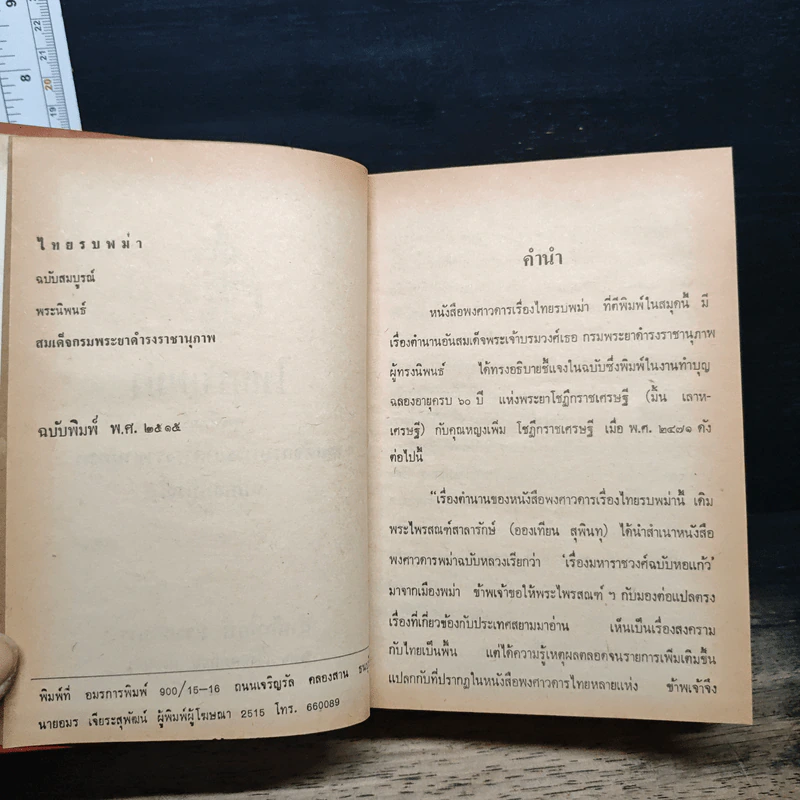 ไทยรบพม่า
ฉบับสมบูรณ์
พระนิพนธ์
สมเด็จกรมพระยาดำรงราชานุภาพ
ฉบับพิมพ์ พ.ศ. ๒๕๑๕
พิมพ์ที่ อมรการพิมพ์ 900/15-16 ถนนเจริญรัถ คลองสาน
นายอมร เจียระสุพัฒน์ ผู้พิมพ์ผู้โฆษณา 2515 โทร. 660089
คำนำ
หนังสือพงศาวดารเรื่องไทยรบพม่า ที่ตีพิมพ์ในสมุดนี้ มี
เรื่องตำนานอันสมเด็จพระเจ้าบรมวงศ์เธอ กรมพระยาดำรงราชานุภาพ
ผู้ทรงนิพนธ์ ได้ทรงอธิบายชี้แจงในฉบับซึ่งพิมพ์ในงานทำบุญ
ฉลองอายุครบ ๖๐ ปี แห่งพระยาโชฎึกราชเศรษฐี (มิ้น เลาห-
เศรษฐี) กับคุณหญิงเพิ่ม โชฎึกราชเศรษฐี เมื่อ พ.ศ. ๒๔๗๑ ดัง
ต่อไปนี้
"เรื่องตำนานของหนังสือพงศาวดารเรื่องไทยรบพม่านี้ เดิม
พระไพรสณฑ์สาลารักษ์ (อองเทียน สุพินทุ) ได้นำสำเนาหนังสือ
พงศาวดารพม่าฉบับหลวงเรียกว่า 'เรื่องมหาราชวงศ์ฉบับหอแก้ว'
มาจากเมืองพม่า ข้าพเจ้าขอให้พระไพรสณฑ์ ฯ กับมองต่อแปลตรง
เรื่องที่เกี่ยวข้องกับประเทศสยามมาอ่าน เห็นเป็นเรื่องสงคราม
กับไทยเป็นพื้น แต่ได้ความรู้เหตุผลตลอดจนรายการเพิ่มเติมขึ้น
แปลกกับที่ปรากฏในหนังสือพงศาวดารไทยหลายแห่ง ข้าพเจ้าจึง